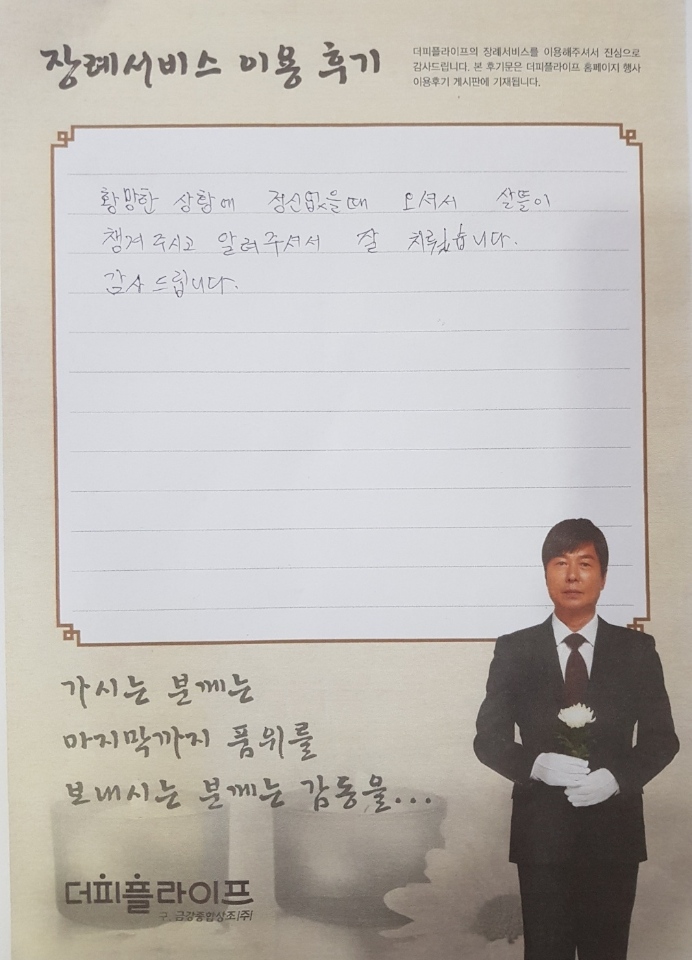 장례서비스 이용 후기
더피플라이프의 장례서비스를 이용해주셔서 진심으로
감사드립니다. 본 후기문은 더피플라이프 홈페이지 행사
이용후기 게시판에 기재됩니다.
황망한 상황에 정신없을때 오셔서 살뜰이
챙겨주시고 알려주셔서 잘 치뤘습니다.
감사드립니다.
가시는 분께는
마지막까지 품위를
보내시는 분께는 감동을...
더피플라이프
구. 금강종합상조(주)